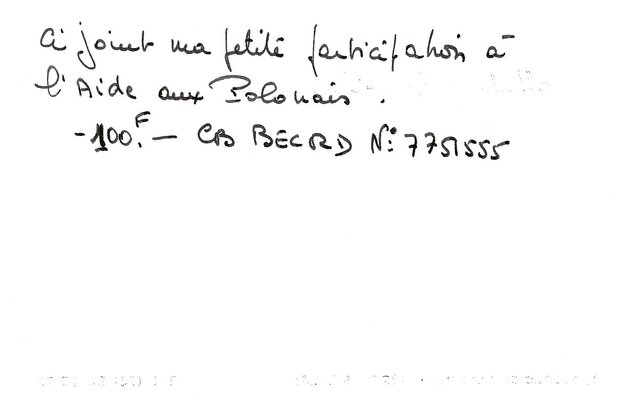 Ci joint ma petite participation à
l'Aide aux Polonais.
-100.F — CB BECRD N°: 7751555